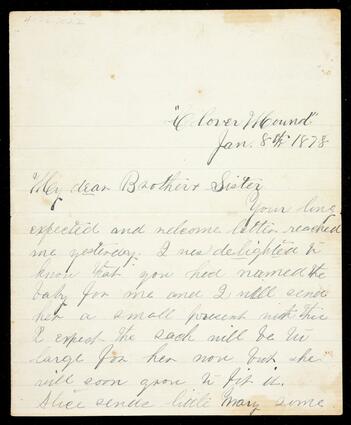 "Clover Mound"
Jan. 8th 1878
"My dear Brother & Sister
Your long
expected and welcome letter reached
me yesterday. I was delighted to
know that you had named the
baby for me and I will send
her a small present with this
I expect the sack will be to
large for her now but she
will soon grow to fit it.
Alice sends little Mary some